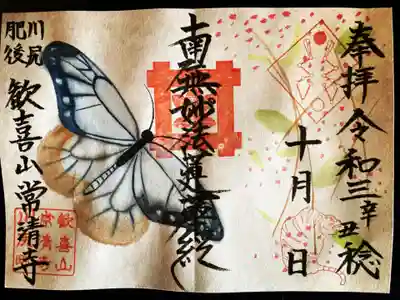 奉拝 令和三辛丑稔
十月 日
南無妙法蓮華経
肥後
川尻
歓喜山 常清寺
歓喜山